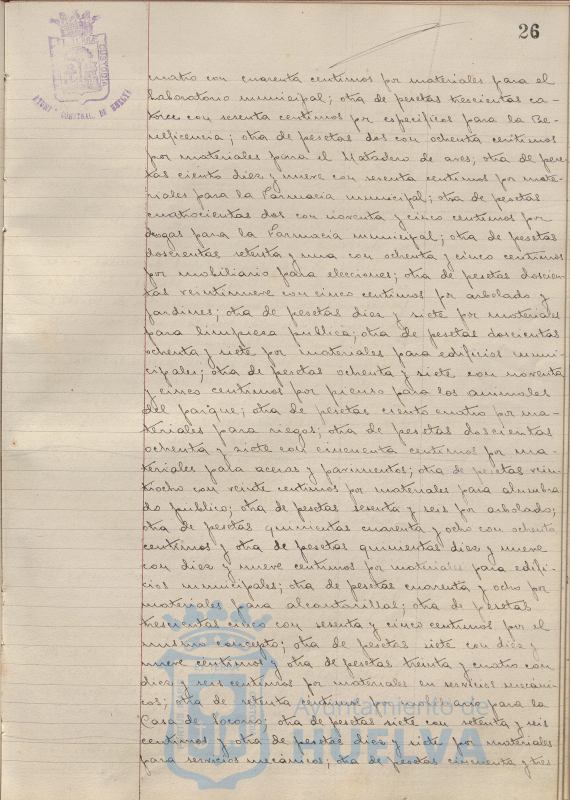 26
CUSTODIA
AYUNT. CONSTNAL. DE HUELVA
cuatro con cuarenta centimos por materiales para el
Laboratorio municipal; otra de pesetas trescientas ca-
torce con sesenta centimos por especificos para la Be-
neficencia; otra de pesetas dos con ochenta centimos
por materiales para el Matadero de aves; otra de pese-
tas ciento diez y nueve con sesenta centimos por mate-
riales para la Farmacia municipal; otra de pesetas
cuatrocientas dos con noventa y cinco centimos por
drogas para la Farmacia municipal; otra de pesetas
doscientas setenta y una con ochenta y cinco centimos
por mobiliario para elecciones; otra de pesetas doscien-
tas veintinueve con cinco centimos por arbolado y
jardines; otra de pesetas diez y siete por materiales
para limpieza publica; otra de pesetas doscientas
ochenta y siete por materiales para edificios muni-
cipales; otra de pesetas ochenta y siete con noventa
y cinco centimos por pienso para los animales
del parque; otra de pesetas ciento cuatro por ma-
teriales para riegos; otra de pesetas doscientas
ochenta y siete con cincuenta centimos por ma-
teriales para aceras y pavimentos; otra de pesetas vein-
tiocho con veinte centimos por materiales para alumbra-
do publico; otra de pesetas sesenta y seis por arbolado;
otra de pesetas quinientas cuarenta y ocho con ochenta
centimos y otra de pesetas quinientas diez y nueve
con diez y nueve centimos por materiales para edifi-
cios municipales; otra de pesetas cuarenta y ocho por
materiales para alcantarillas; otra de pesetas
trescientas cinco con sesenta y cinco centimos por el
mismo concepto; otra de pesetas siete con diez y
nueve centimos y otra de pesetas treinta y cuatro con
diez y seis centimos por materiales en servicios mecani-
cos; otra de setenta centimos por para la
Casa de Socorro; otra de pesetas siete con setenta y seis
centimos y otra de pesetas diez y siete por materiales
para servicios mecanicos; otra de pesetas cincuenta y tres
Ayuntamiento de
HUELVA